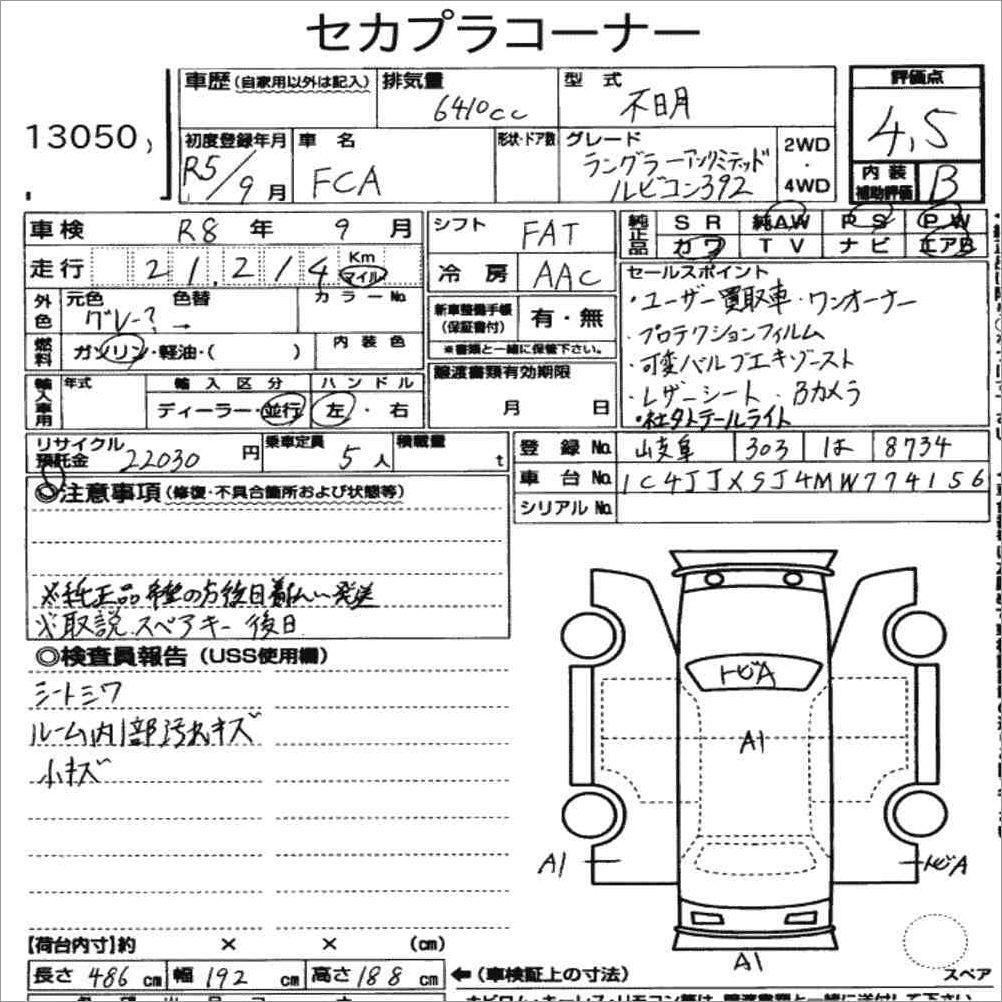 セカプラコーナー
13050,
車歴 (自家用以外は記入)
排気量
6410cc
型 式
不明
評価点
4,5
初度登録年月
R5/9月
車 名
FCA
形状・ドア数
グレード
ラングラーアンリミテッド
ルビコン392
2WD
・
4WD
内装
補助評価
B
車検 R8 年 9 月
シフト FAT
純正品
SR 純AW PS PW
カワ TV ナビ エアB
走行 21,214 Km マイル
冷房 AAC
外色
元色 色替 カラーNo.
グレー? →
新車整備手帳
(保証書付)
有・無
※書類と一緒に保管下さい。
燃料
ガソリン・軽油・( )
内装色
セールスポイント
・ユーザー買取車・ワンオーナー
・プロテクションフィルム
・可変バルブエキゾースト
・レザーシート・Bカメラ
・社外テールライト
輸入車用
年式 輸入区分 ハンドル
ディーラー・並行 左・右
譲渡書類有効期限
月 日
リサイクル
預託金 22030 円
乗車定員 5人
積載量 t
登録No. 岐阜 303 は 8734
車台No. 1C4JJXSJ4MW774156
シリアルNo.
◎注意事項 (修復・不具合箇所および状態等)
※純正品希望の方後日着払い発送
※取説スペアキー後日
◎検査員報告 (USS使用欄)
シートシワ
ルーム内1部汚れキズ
小キズ
トビA
A1
A1
トビA
A1
【荷台内寸】約 × × (cm)
長さ 486 cm 幅 192 cm 高さ 188 cm
←(車検証上の寸法)
スペア